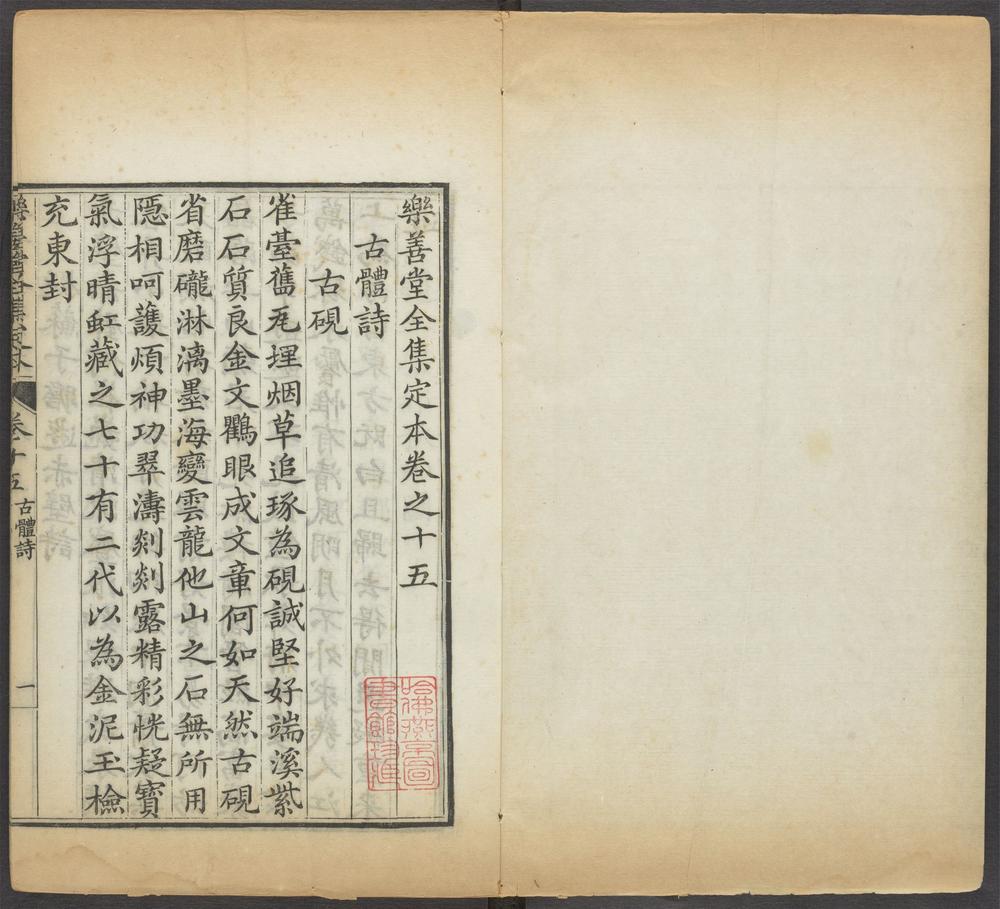 樂善堂全集定本卷之十五
古體詩
古硯
雀臺舊瓦埋烟草追琢為硯誠堅好端溪紫
石石質良金文鸜眼成文章何如天然古硯
省磨礲淋漓墨海變雲龍他山之石無所用
隱相呵護煩神功翠濤剡剡露精彩恍疑寶
氣浮晴虹藏之七十有二代以為金泥玉檢
充東封
樂善堂全集定本
卷十五
古體詩
一
哈佛燕京圖
書館珍藏